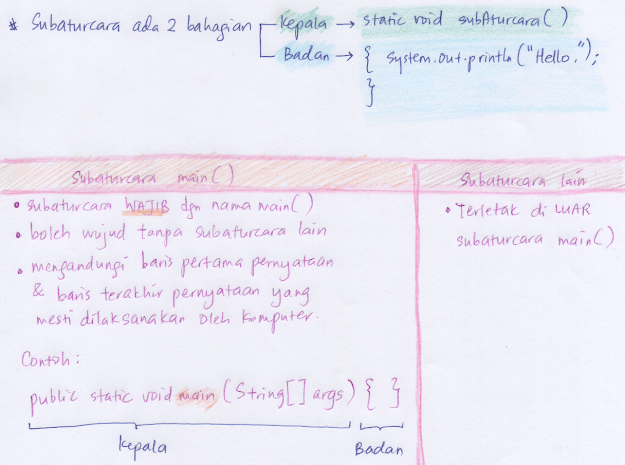 * Subaturcara ada 2 bahagian Kepala → static void subAturcara( )
Badan → { System.out.println("Hello.");
}
Subaturcara main( )
• subaturcara WAJIB dgn nama main( )
• boleh wujud tanpa subaturcara lain
• mengandungi baris pertama pernyataan
& baris terakhir pernyataan yang
mesti dilaksanakan oleh komputer.
Contoh :
public static void main (String[] args) { }
Kepala Badan
Subaturcara lain
• Terletak di LUAR
subaturcara main( )